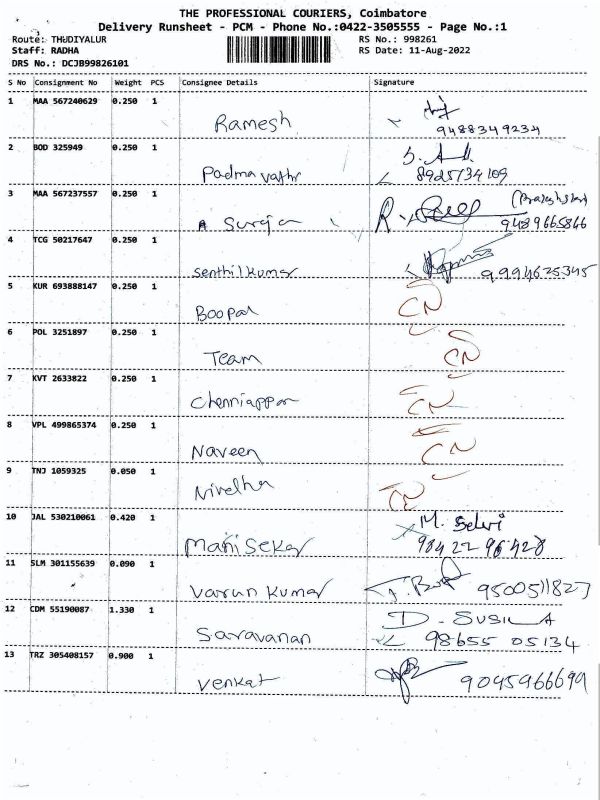 THE PROFESSIONAL COURIERS, Coimbatore
Delivery Runsheet - PCM - Phone No.:0422-3505555 - Page No.:1
Route: THUDIYALUR RS No.: 998261
Staff: RADHA RS Date: 11-Aug-2022
DRS No.: DCJB99826101
S No Consignment No Weight PCS Consignee Details Signature
1 MAA 567240629 0.250 1 Ramesh
9488349234
2 BOD 325949 0.250 1 Padma vathi
8925134109
3 MAA 567237557 0.250 1 A Surya
9489665866
4 TCG 50217647 0.250 1 Senthil kumar
9994625345
5 KUR 693888147 0.250 1 Boopal CN
6 POL 3251897 0.250 1 Team CN
7 KVT 2633822 0.250 1 Chenniappan CN
8 VPL 499865374 0.250 1 Naveen CN
9 TNJ 1059325 0.050 1 Nivetha CN
10 JAL 530210061 0.420 1 Mani Sekar M. Selvi
98422 96428
11 SLM 301155639 0.090 1 Varun Kumar 9500511827
12 CDM 55190087 1.330 1 Saravanan D. SUSILA
98655 05134
13 TRZ 305408157 0.900 1 Venkat 9095966699